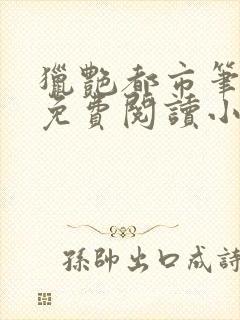 獵艷都市筆
免費閱讀小
孫帥出口成詩